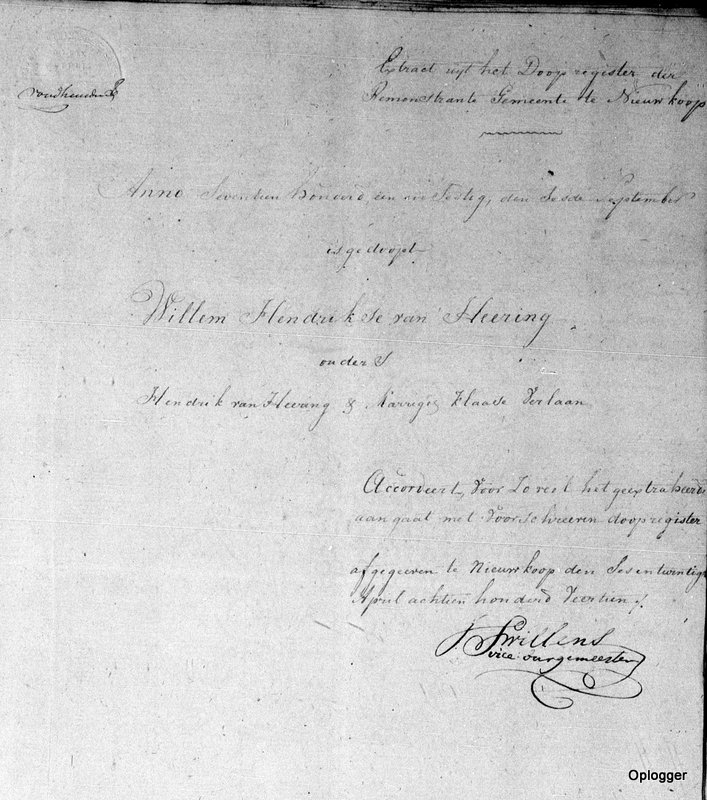 Extract uyt het Doopregister der
Remonstrante Gemeente te Nieuwkoop
Anno Seventien Honderd, een en Sestig, den Sesde September
is gedoopt
Willem Hendrikse van Heering
ouders
Hendrik van Heering & Marrigie Klaase Verlaan
Accordeert, Voor Zo veel het geextraheerde
aangaat met voorschreeven doopregister
afgegeeven te Nieuwkoop den Sesentwintigste
April achtien honderd Veertien
Willens
vice burgemeester
Oplogger